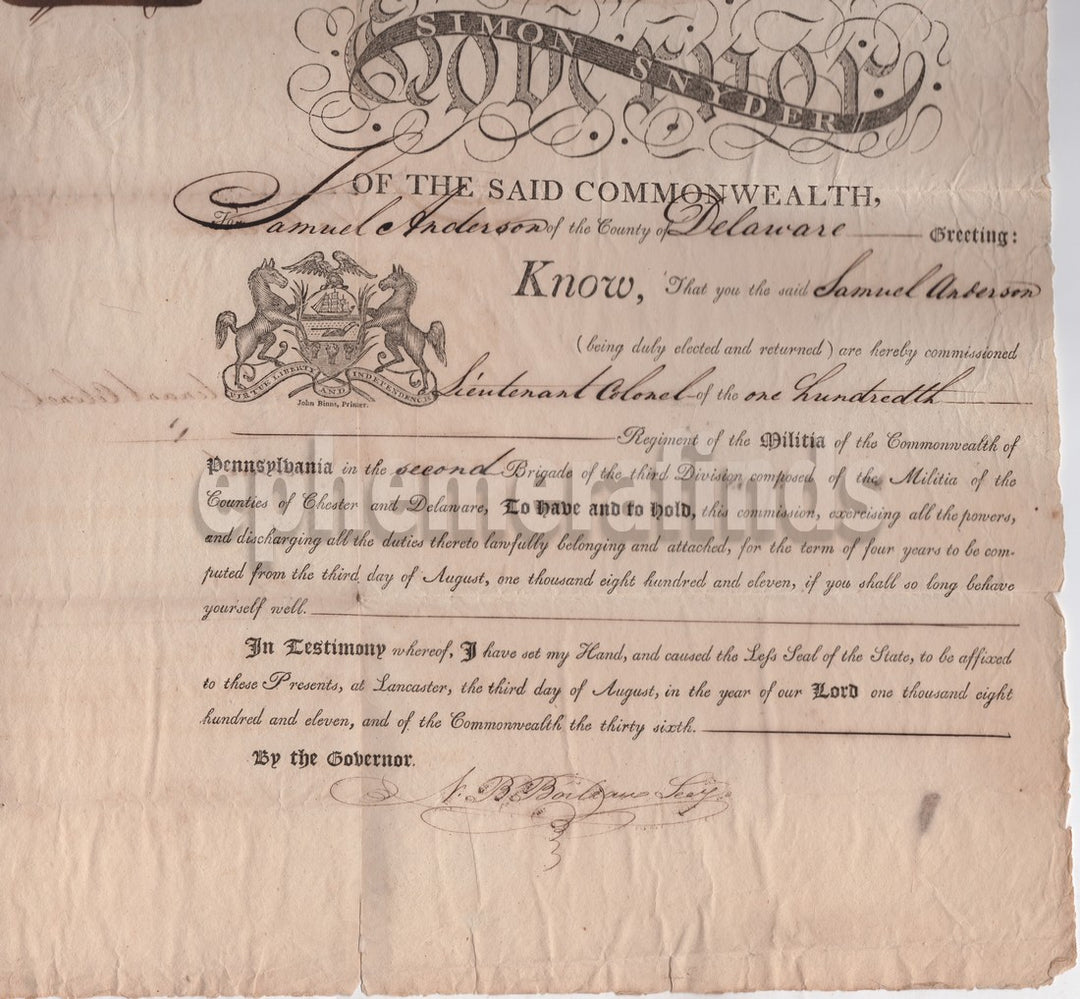 Governor
SIMON SNYDER
OF THE SAID COMMONWEALTH,
To Samuel Anderson of the County of Delaware Greeting:
Know, That you the said Samuel Anderson
(being duly elected and returned) are hereby commissioned
VIRTUE LIBERTY AND INDEPENDENCE
Lieutenant Colonel of the one hundredth
John Binns, Printer.
Regiment of the Militia of the Commonwealth of
Pennsylvania in the second Brigade of the third Division composed of the Militia of the
Counties of Chester and Delaware, To have and to hold, this commission, exercising all the powers,
and discharging all the duties thereto lawfully belonging and attached, for the term of four years to be com-
puted from the third day of August, one thousand eight hundred and eleven, if you shall so long behave
yourself well.
In Testimony whereof, I have set my Hand, and caused the Leſs Seal of the State, to be affixed
to these Presents, at Lancaster, the third day of August, in the year of our Lord one thousand eight
hundred and eleven, and of the Commonwealth the thirty sixth.
By the Governor.
N. B. Boileau Secy.
ephemerafinds